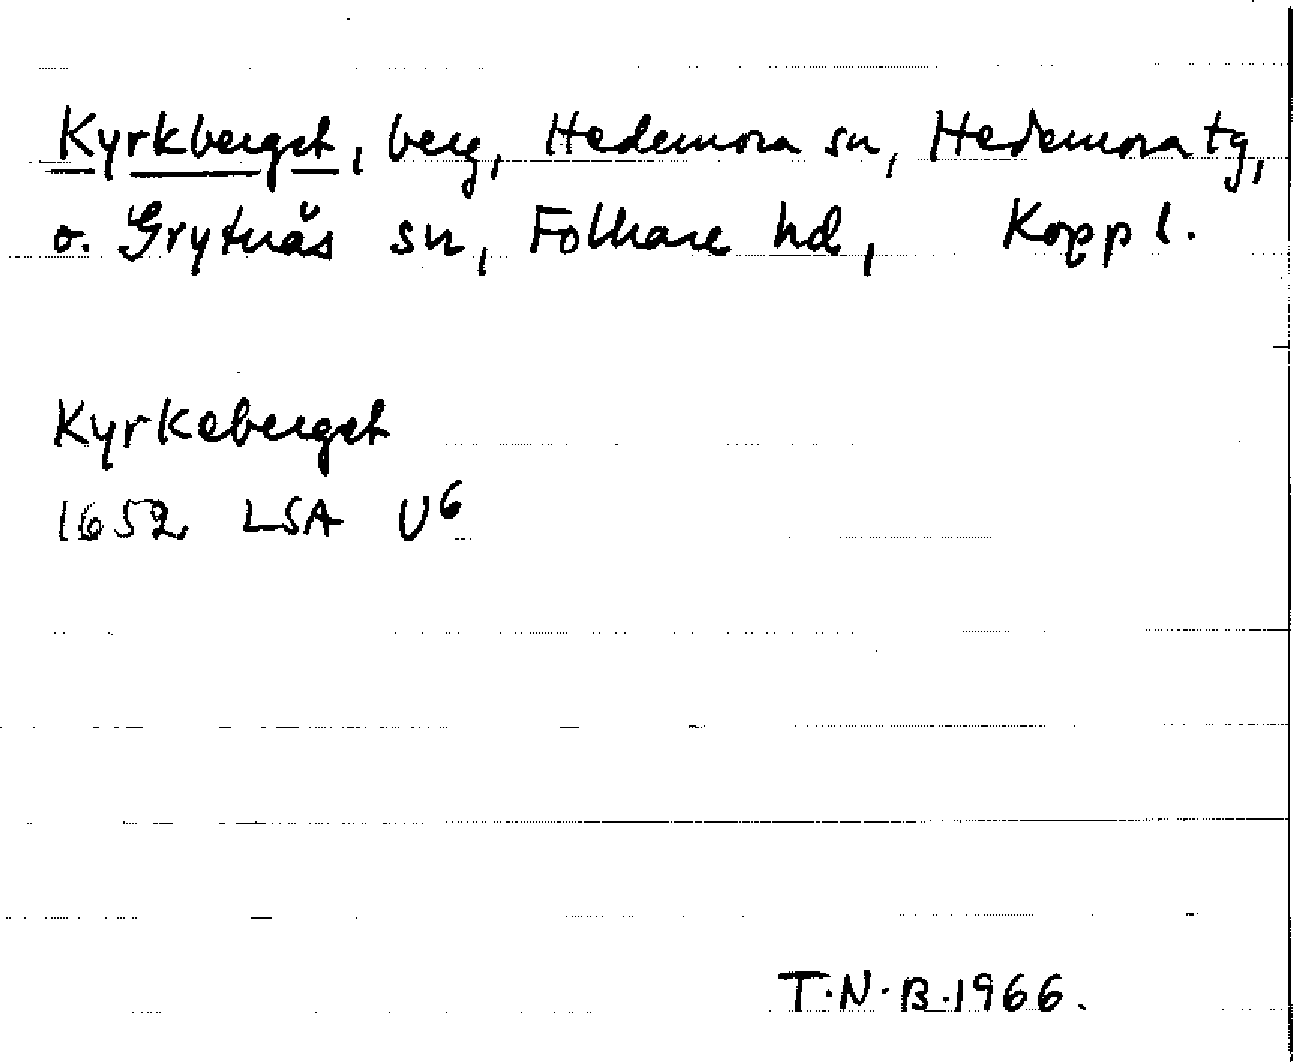 Kyrkberget, berg, Hedemora sn, Hedemora tg,
o. Grytnäs sn, Folkare hd, Kopp l.
Kyrkeberget
1652 LSA U6
T.N.B. 1966.